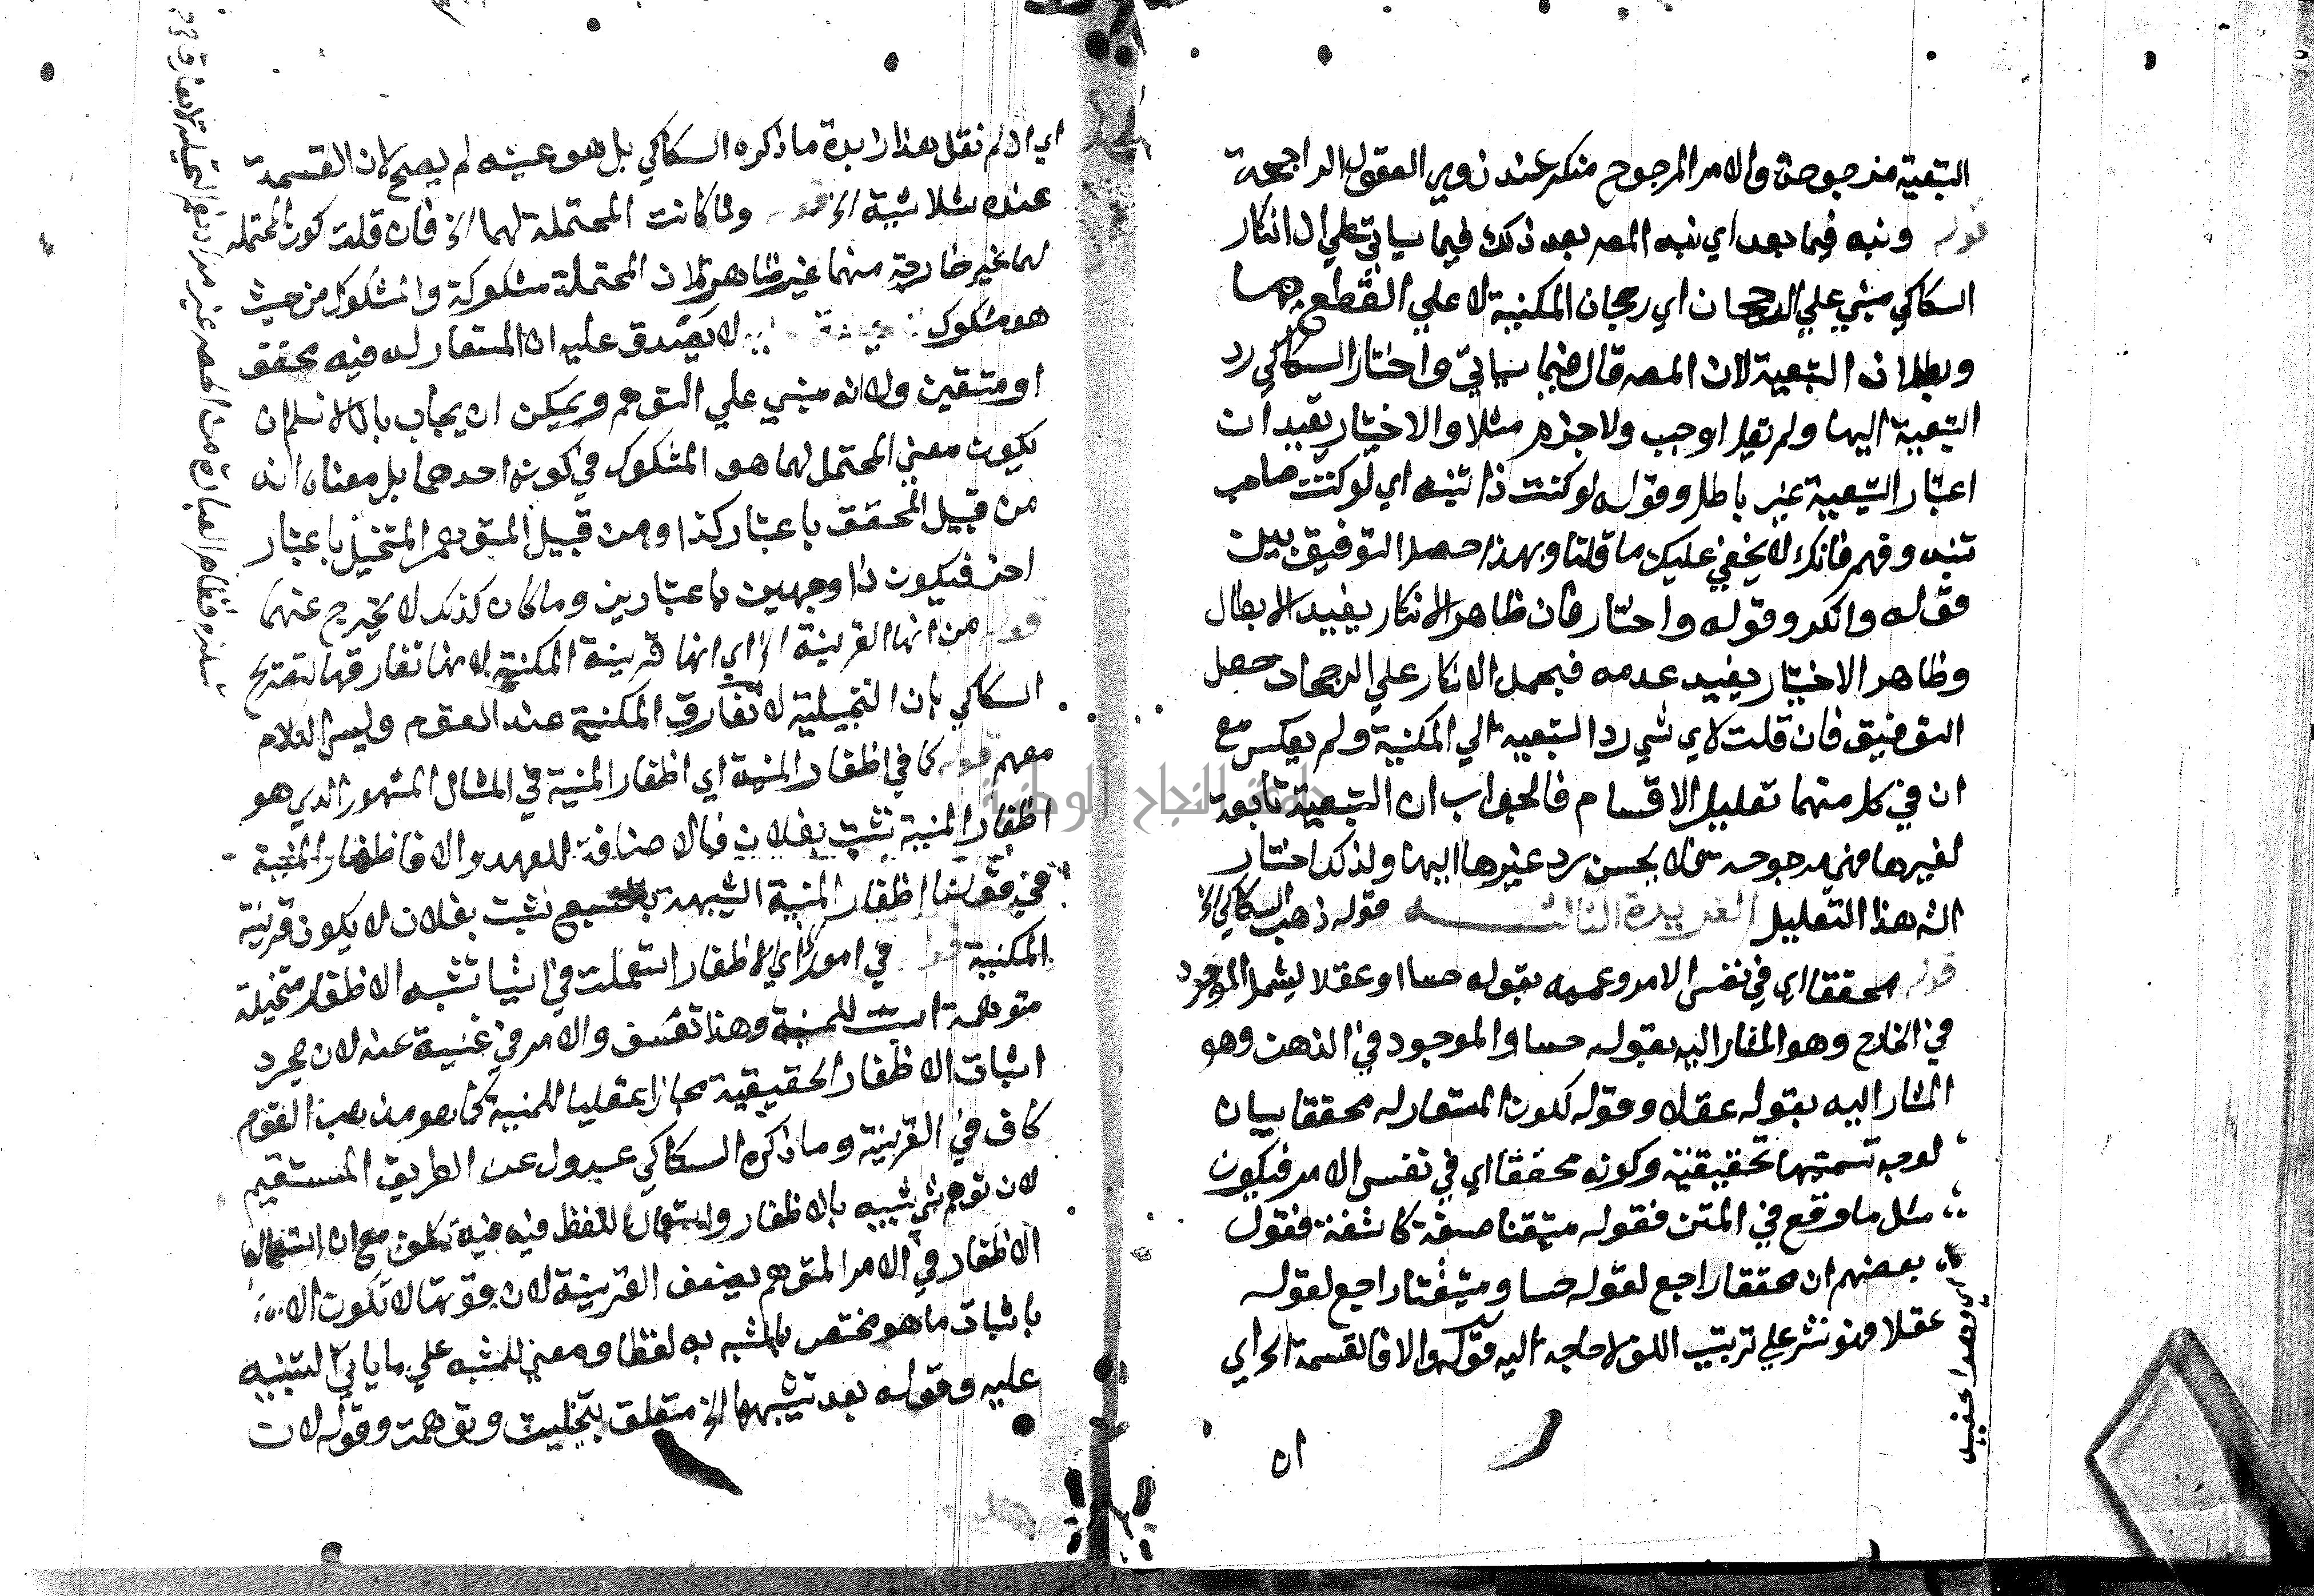 التبعية مرجوحة والامر المرجوح منكر عند ذوي العقول الراجحة
قوله ونبه فيما بعد اي نبه المصر بعد ذلك فيما سياتي علي ان انكار
السكاكي مبني علي الرجحان اي رجحان المكنية لا علي القطع بها
وبطلان التبعية لان المصر قال فيما سياتي واختار السكاكي رد
التبعية اليها ولم يقل اوجب ولا جزم مثلا والاختيار يفيد ان
اعتبار التبعية غير باطل وقوله لو كنت ذا تنبه اي لو كنت صاحب
تنبه وفهم فانك لا يخفي عليك ما قلنا وبهذا حصل التوفيق بين
قوله وانكر وقوله واختار فان ظاهر الانكار يفيد الابطال
وظاهر الاختيار يفيد عدمه فيحمل الانكار علي الرجحان حصل
التوفيق فان قلت لاي شي رد التبعية الي المكنية ولم يعكس مع
ان في كل منهما تقليل الاقسام فالجواب ان التبعية تابعة
لغيرها فهي مرجوحة فلا يحسن رد غيرها اليها ولذلك اختار
اله هذا التقليل الفريدة الثالثة قوله ذهب السكاكي الخ
قوله محققا اي في نفس الامر وعممه بقوله حسا او عقلا ليشمل الموجود
في الخارج وهو المشار اليه بقوله حسا والموجود في الذهن وهو
المشار اليه بقوله عقلا وقوله لكون المستعار له محققا بيان
لوجه تسميتها تحقيقية وكونه محققا اي في نفس الامر فيكون
مثل ما وقع في المتن فقوله متيقنا صفة كاشفة فقول
بعضهم ان محققا راجع لقوله حسا ومتيقنا راجع لقوله
عقلا فهو نشر علي ترتيب اللف لا حاجة اليه قوله والا فالقسمة الخ اي
ان
اي ان لم نقل هذا زايدة ما ذكره السكاكي بل هو عينه لم يصح لان القسمة
عنده ثلاثية الخ قوله ولما كانت المحتملة لهما الخ فان قلت كون المحتملة
لهما غير خارجة منهما غير ظاهر لان المحتملة مشكوكة والمشكوك من حيث
هو مشكوك لا يصدق عليه ان المستعار له فيه محقق
او متيقن ولا انه مبني علي التوهم ويمكن ان يجاب بانا لا نسلم ان
يكون معني المحتمل لهما هو المشكوك في كونه احدهما بل معناه انه
من قبيل المحقق باعتبار كذا ومن قبيل المتوهم المتخيل باعتبار
اخر فيكون ذا وجهين باعتبارين وما كان كذلك لا يخرج عنهما
قوله من انها القرينة الخ اي انها قرينة المكنية لا انها تفارقها لتصريح
السكاكي بان التخييلية لا تفارق المكنية عند القوم وليس الكلام
معهم قوله كما في اظفار المنية اي اظفار المنية في المثال المشهور الذي هو
اظفار المنية نشبت بفلان فالاضافة للعهد والا فاظفار المنية
في قولنا اظفار المنية الشبيهة بالسبع نشبت بفلان لا يكون قرينة
المكنية قوله في امور اي الاظفار استعملت في اشيا تشبه الاظفار متخيلة
متوهمة اثبتت للمنية وهذا تعسف والامر في غنية عنه لان مجرد
اثبات الاظفار الحقيقية مجازا عقليا للمنية كما هو مذهب القوم
كاف في القرينة وما ذكره السكاكي عدول عن الطريق المستقيم
لان توهم شي شبيه بالاظفار واستعمال اللفظ فيه فيه تكلف مع ان استعمال
الاظفار في الامر المتوهم يضعف القرينة لان قوتها لا تكون الا
باثبات ما هو مختص بالمشبه به لفظا ومعني للمشبه علي ما ياتي التنبيه
عليه وقوله بعد تشبيهها الخ متعلق بتخيلت وتوهمت وقوله لان
جامعة النجاح الوطنية